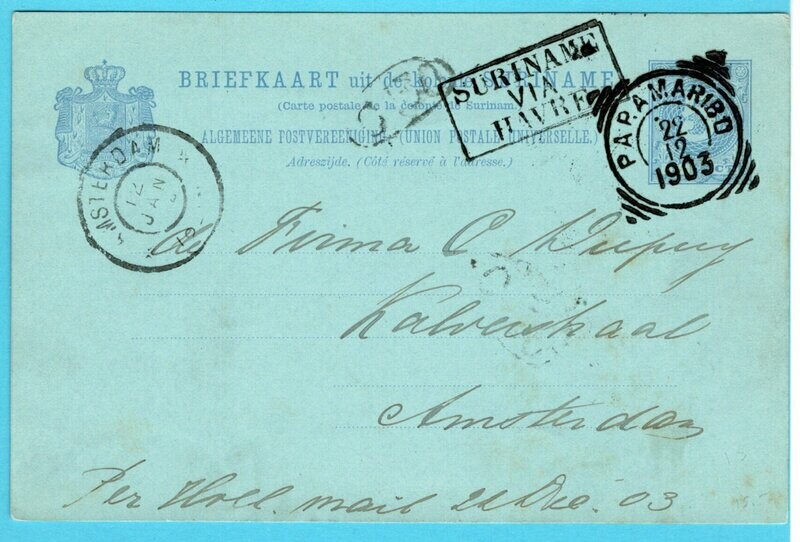 BRIEFKAART uit de kolonie SURINAME.
(Carte postale de la colonie de Surinam.)
ALGEMEENE POSTVEREENIGING (UNION POSTALE UNIVERSELLE.)
Adreszijde. (Côté réservé à l'adresse.)
SURINAME
VIA
HAVRE
PARAMARIBO
22
12
1903
AMSTERDAM
12
JAN
de Firma C Dupuy
Kalverstraat
Amsterdam
Per Holl. mail 22 Dec. 03